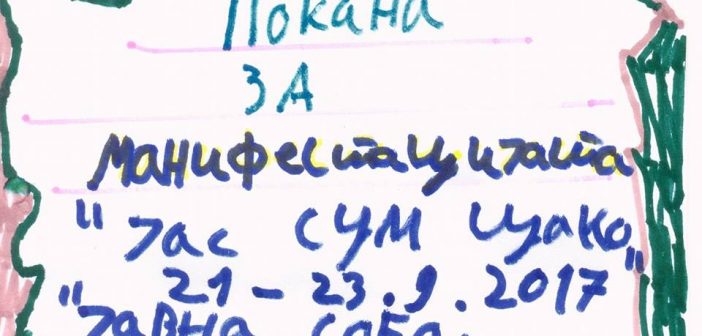 Покана
ЗА
манифестацијата
"Јас СУМ Цако"
21 – 23.9.2017
"Јавна соба